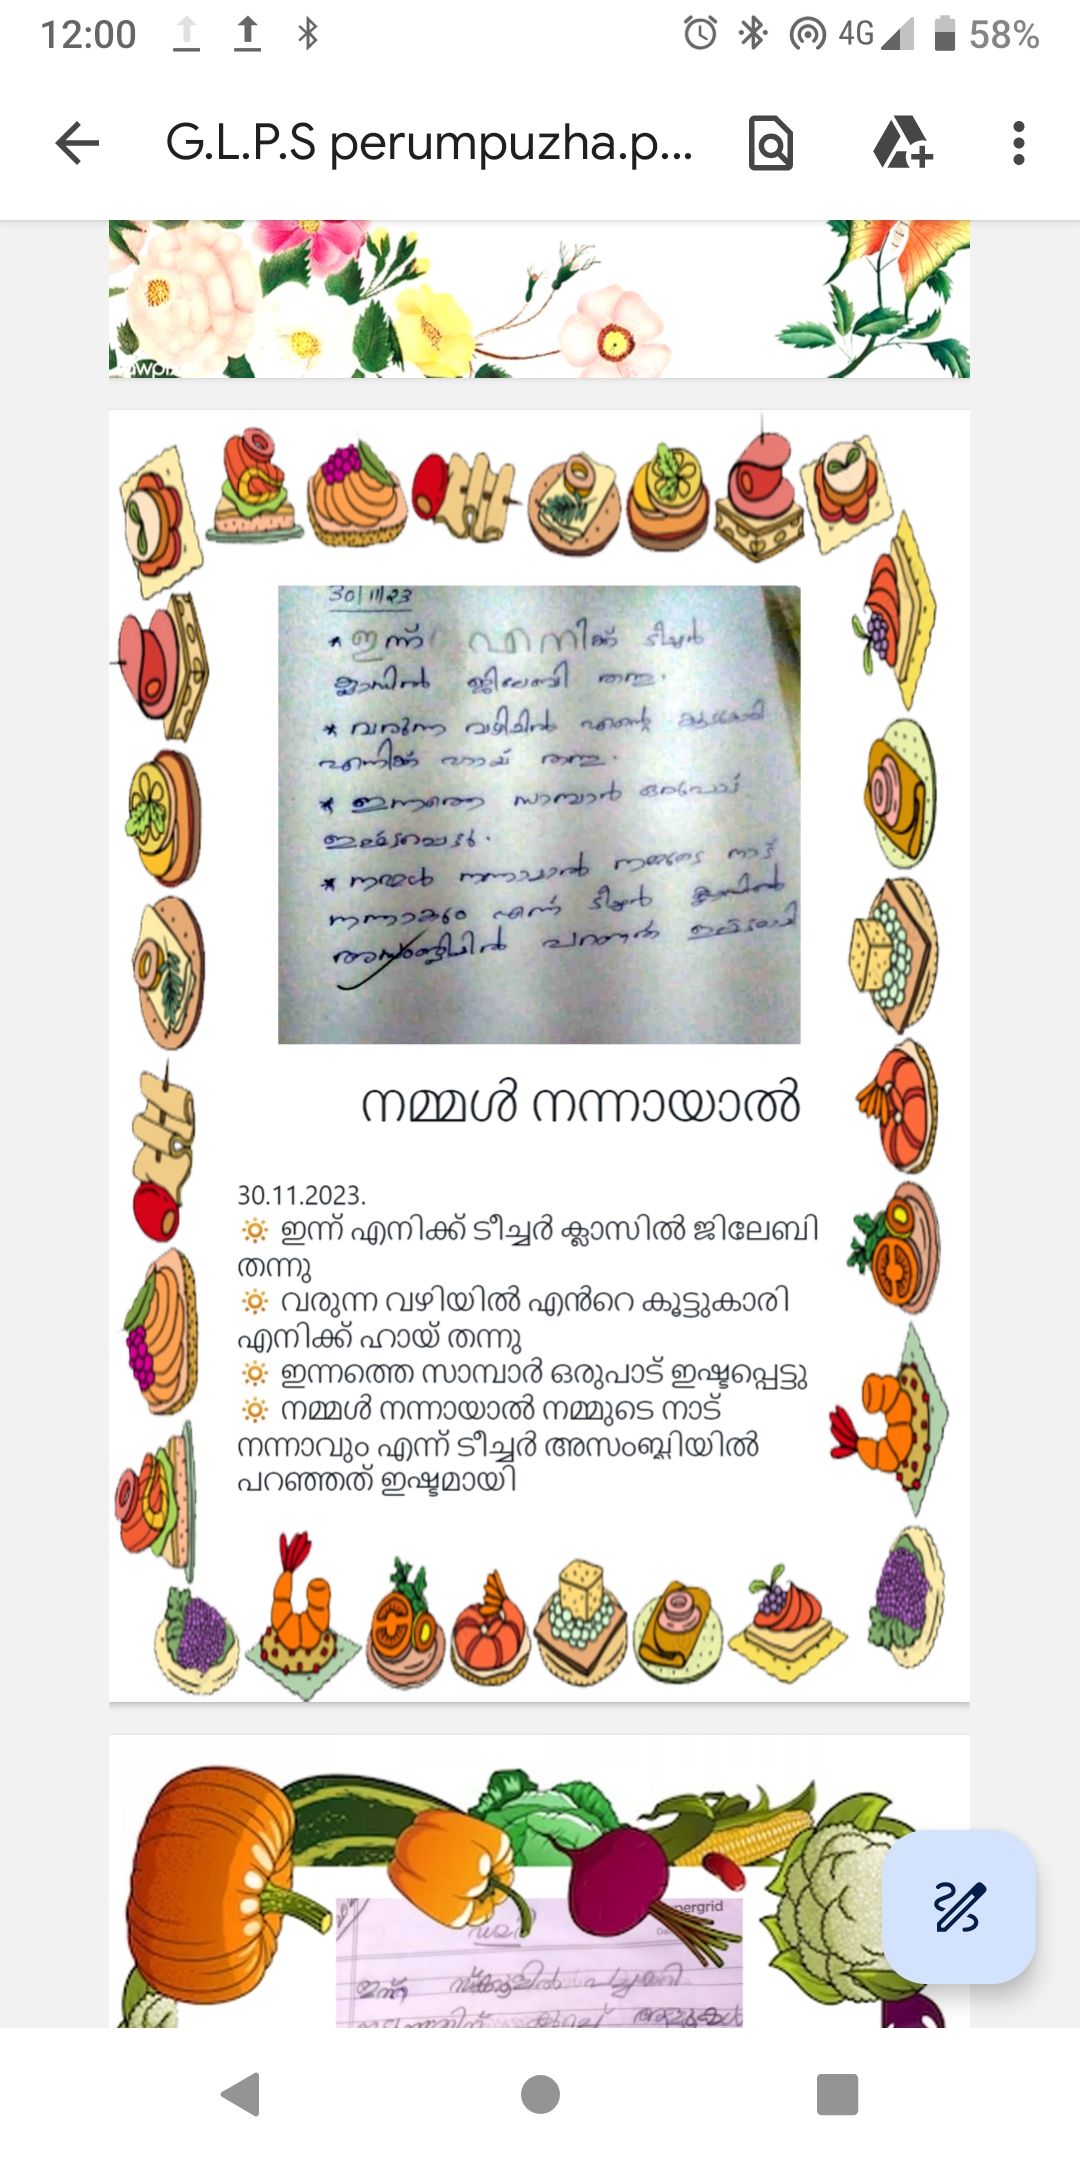 12:00
4G 58%
G.L.P.S perumpuzha.p...
30/11/23
* ഇന്ന് എനിക്ക് ടീച്ചർ
ക്ലാസിൽ ജിലേബി തന്നു.
* വരുന്ന വഴിയിൽ എന്റെ കൂട്ടുകാരി
എനിക്ക് ഹായ് തന്നു.
* ഇന്നത്തെ സാമ്പാർ ഒരുപാട്
ഇഷ്ടപ്പെട്ടു.
* നമ്മൾ നന്നായാൽ നമ്മുടെ നാട്
നന്നാകും എന്ന് ടീച്ചർ ക്ലാസിൽ
അസംബ്ലിയിൽ പറഞ്ഞത് ഇഷ്ടമായി
നമ്മൾ നന്നായാൽ
30.11.2023.
🔅 ഇന്ന് എനിക്ക് ടീച്ചർ ക്ലാസിൽ ജിലേബി
തന്നു
🔅 വരുന്ന വഴിയിൽ എൻറെ കൂട്ടുകാരി
എനിക്ക് ഹായ് തന്നു
🔅 ഇന്നത്തെ സാമ്പാർ ഒരുപാട് ഇഷ്ടപ്പെട്ടു
🔅 നമ്മൾ നന്നായാൽ നമ്മുടെ നാട്
നന്നാവും എന്ന് ടീച്ചർ അസംബ്ലിയിൽ
പറഞ്ഞത് ഇഷ്ടമായി
ഇന്ന് സ്കൂളിൽ